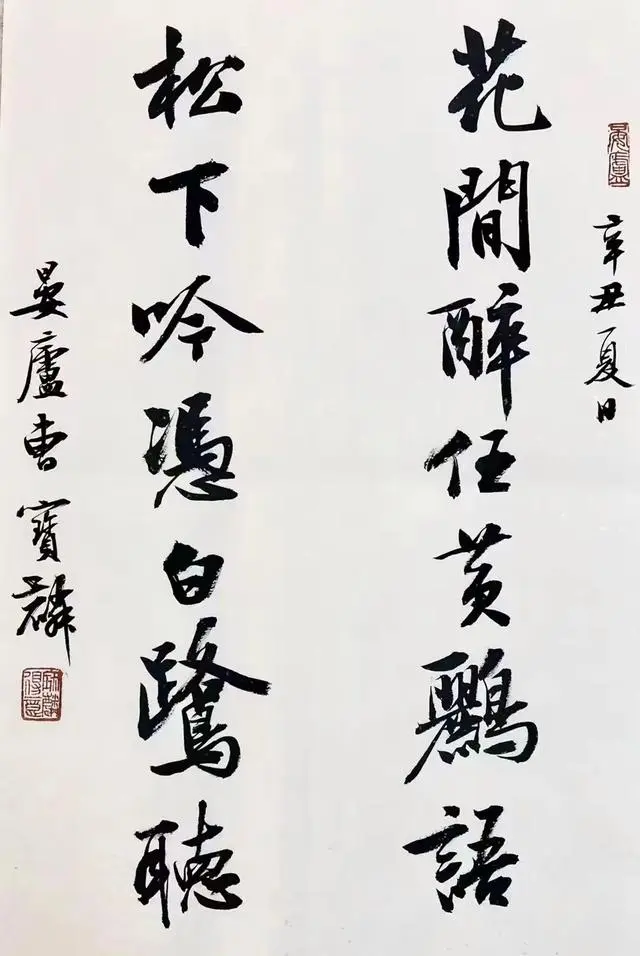 辛丑夏日
花間醉任黃鸝語
松下吟憑白鷺聽
晏廬曹寶麟